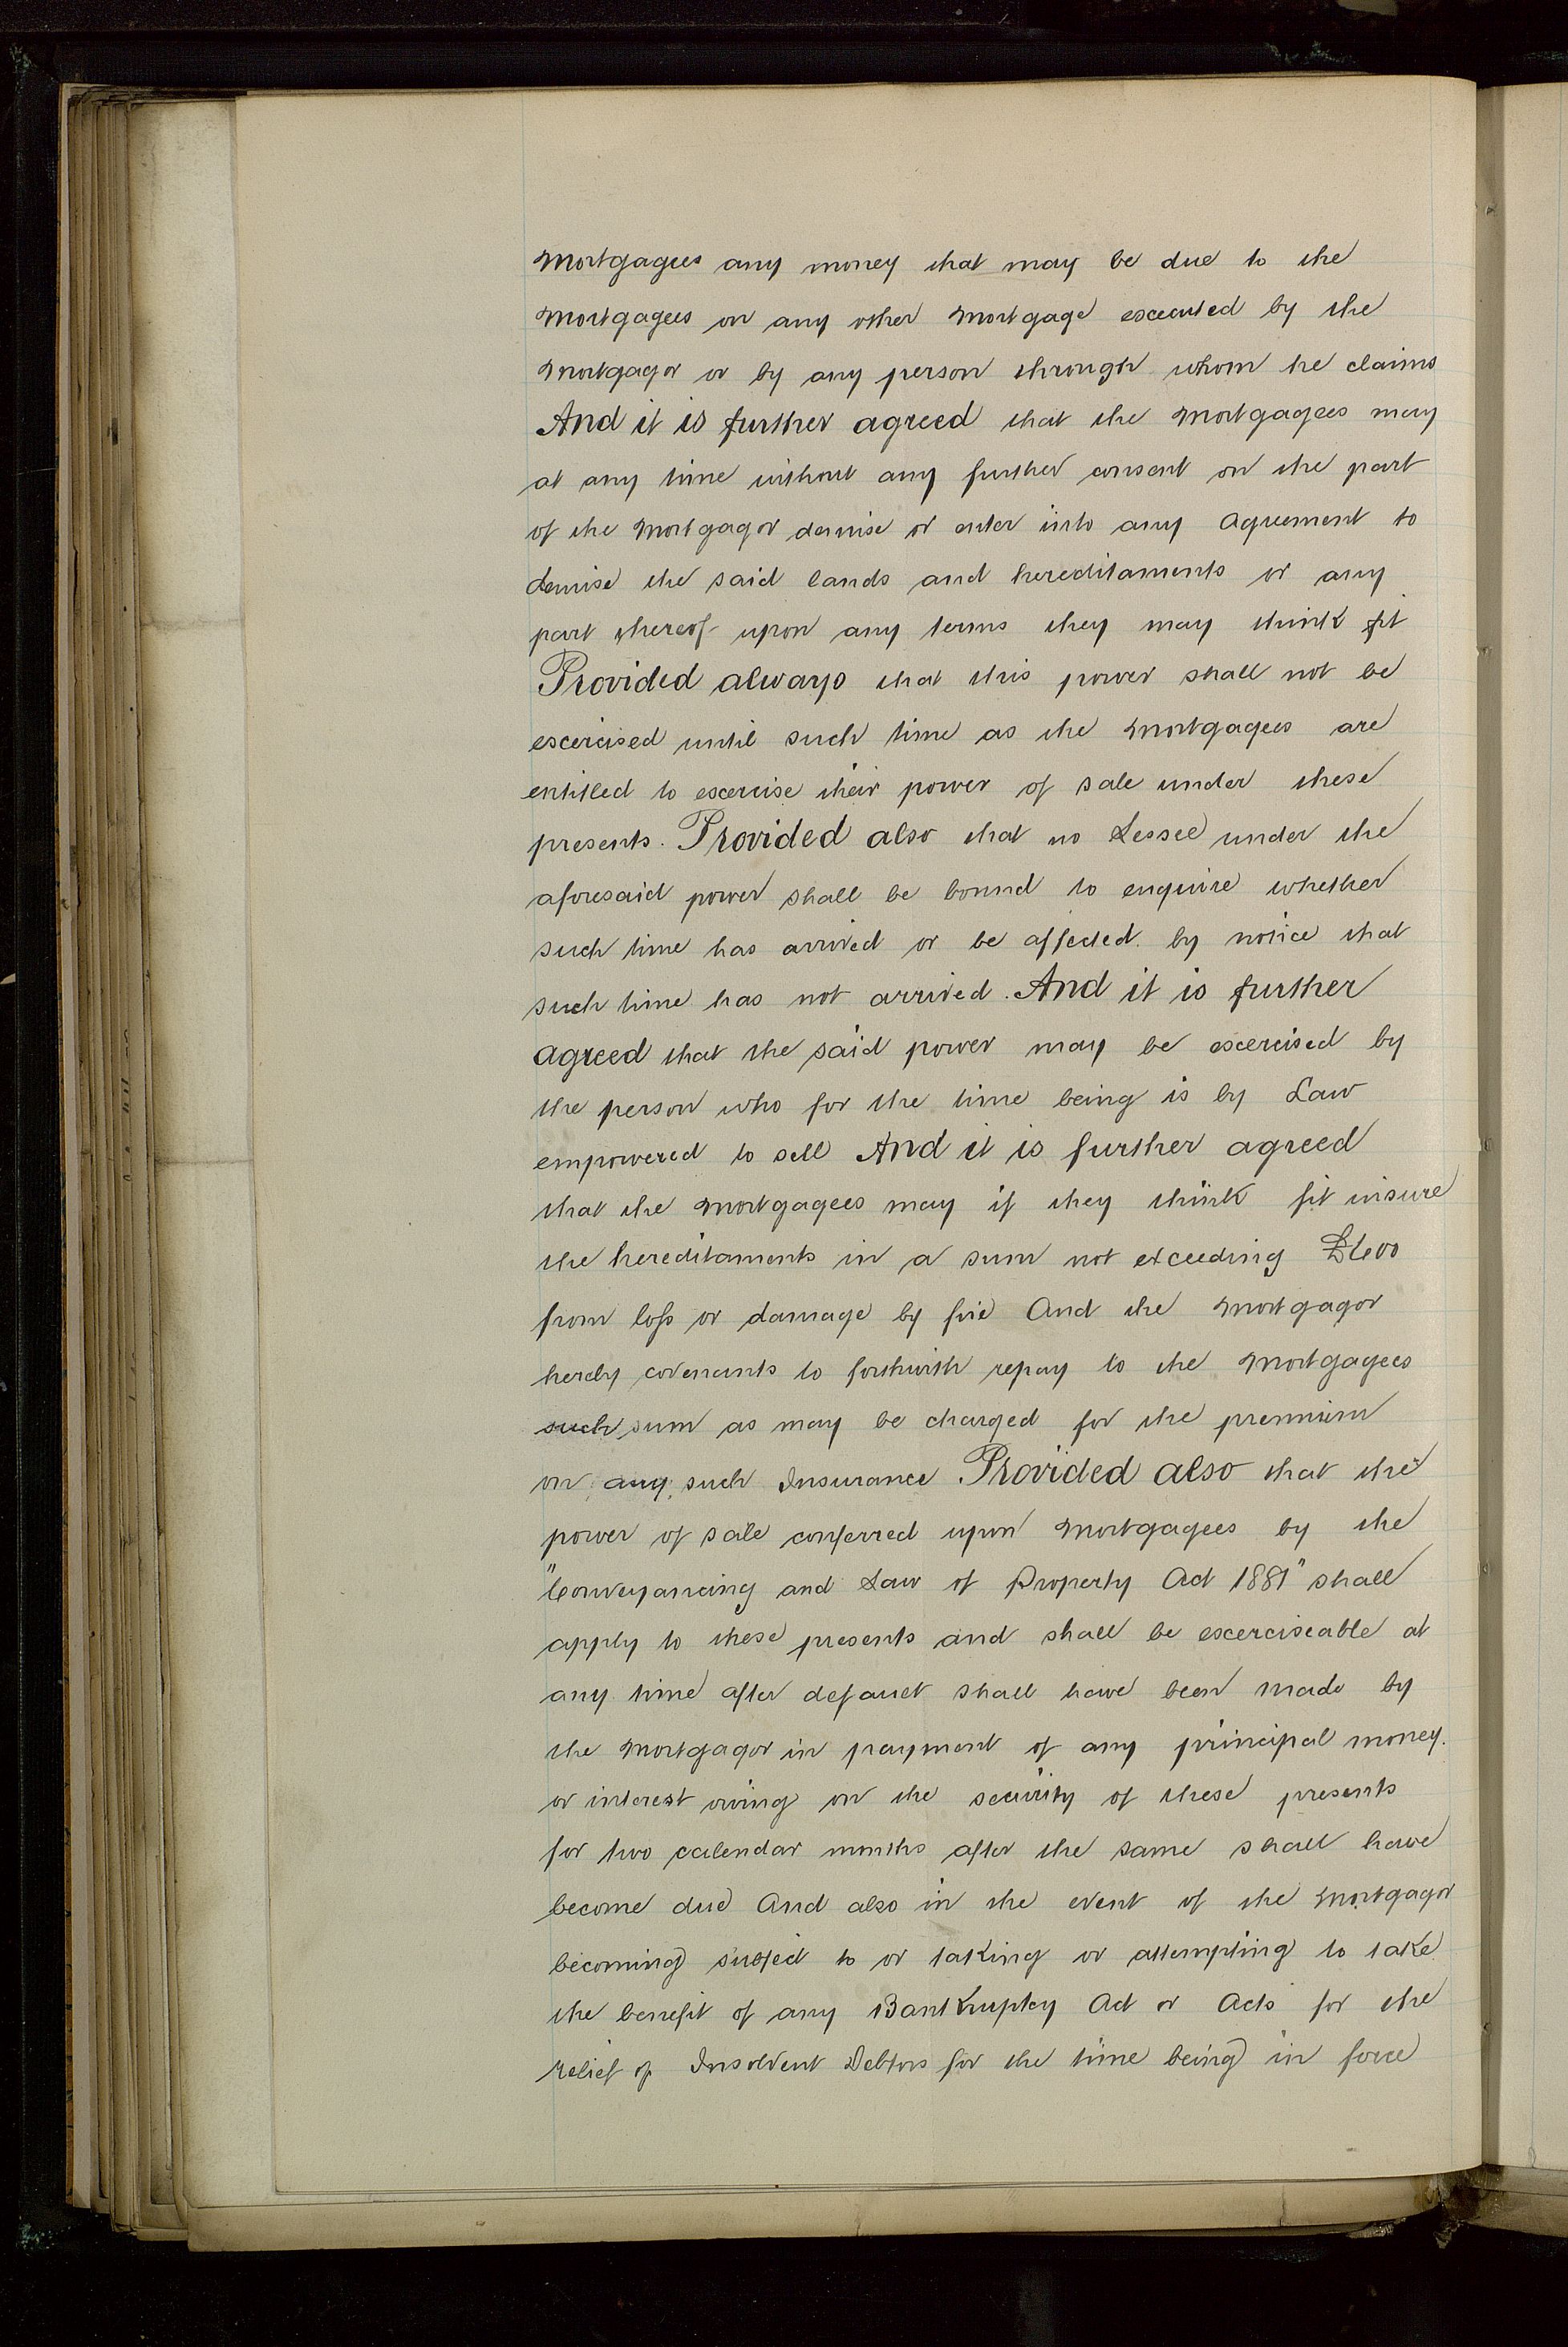 Mortgagees any money that may be due to the
Mortgagees on any other Mortgage executed by the
Mortgagor or by any person through whom he claims
And it is further agreed that the Mortgagees may
at any time without any further consent on the part
of the Mortgagor demise or enter into any Agreement to
demise the said lands and hereditaments or any
part thereof upon any terms they may think fit
Provided always that this power shall not be
exercised until such time as the Mortgagees are
entitled to exercise their power of sale under these
presents. Provided also that no Lessee under the
aforesaid power shall be bound to enquire whether
such time has arrived or be affected by notice that
such time has not arrived. And it is further
agreed that the said power may be exercised by
the person who for the time being is by Law
empowered to sell And it is further agreed
that the Mortgagees may if they think fit insure
the hereditaments in a sum not exceeding
from loss or damage by fire And the Mortgagor
hereby covenants to forthwith repay to the Mortgagees
such sum as may be charged for the premium
on any such Insurance Provided also that the
power of sale conferred upon Mortgagees by the
"Conveyancing and Law of Property Act 1881" shall
apply to these presents and shall be exerciseable at
any time after default shall have been made by
the Mortgagor in payment of any principal money.
or interest owing on the security of these presents
for two calendar months after the same shall have
become due And also in the event of the Mortgagor
becoming subject to or taking or attempting to take
the benefit of any Bankruptcy Act or Acts for the
relief of Insolvent Debtors for the time being in force